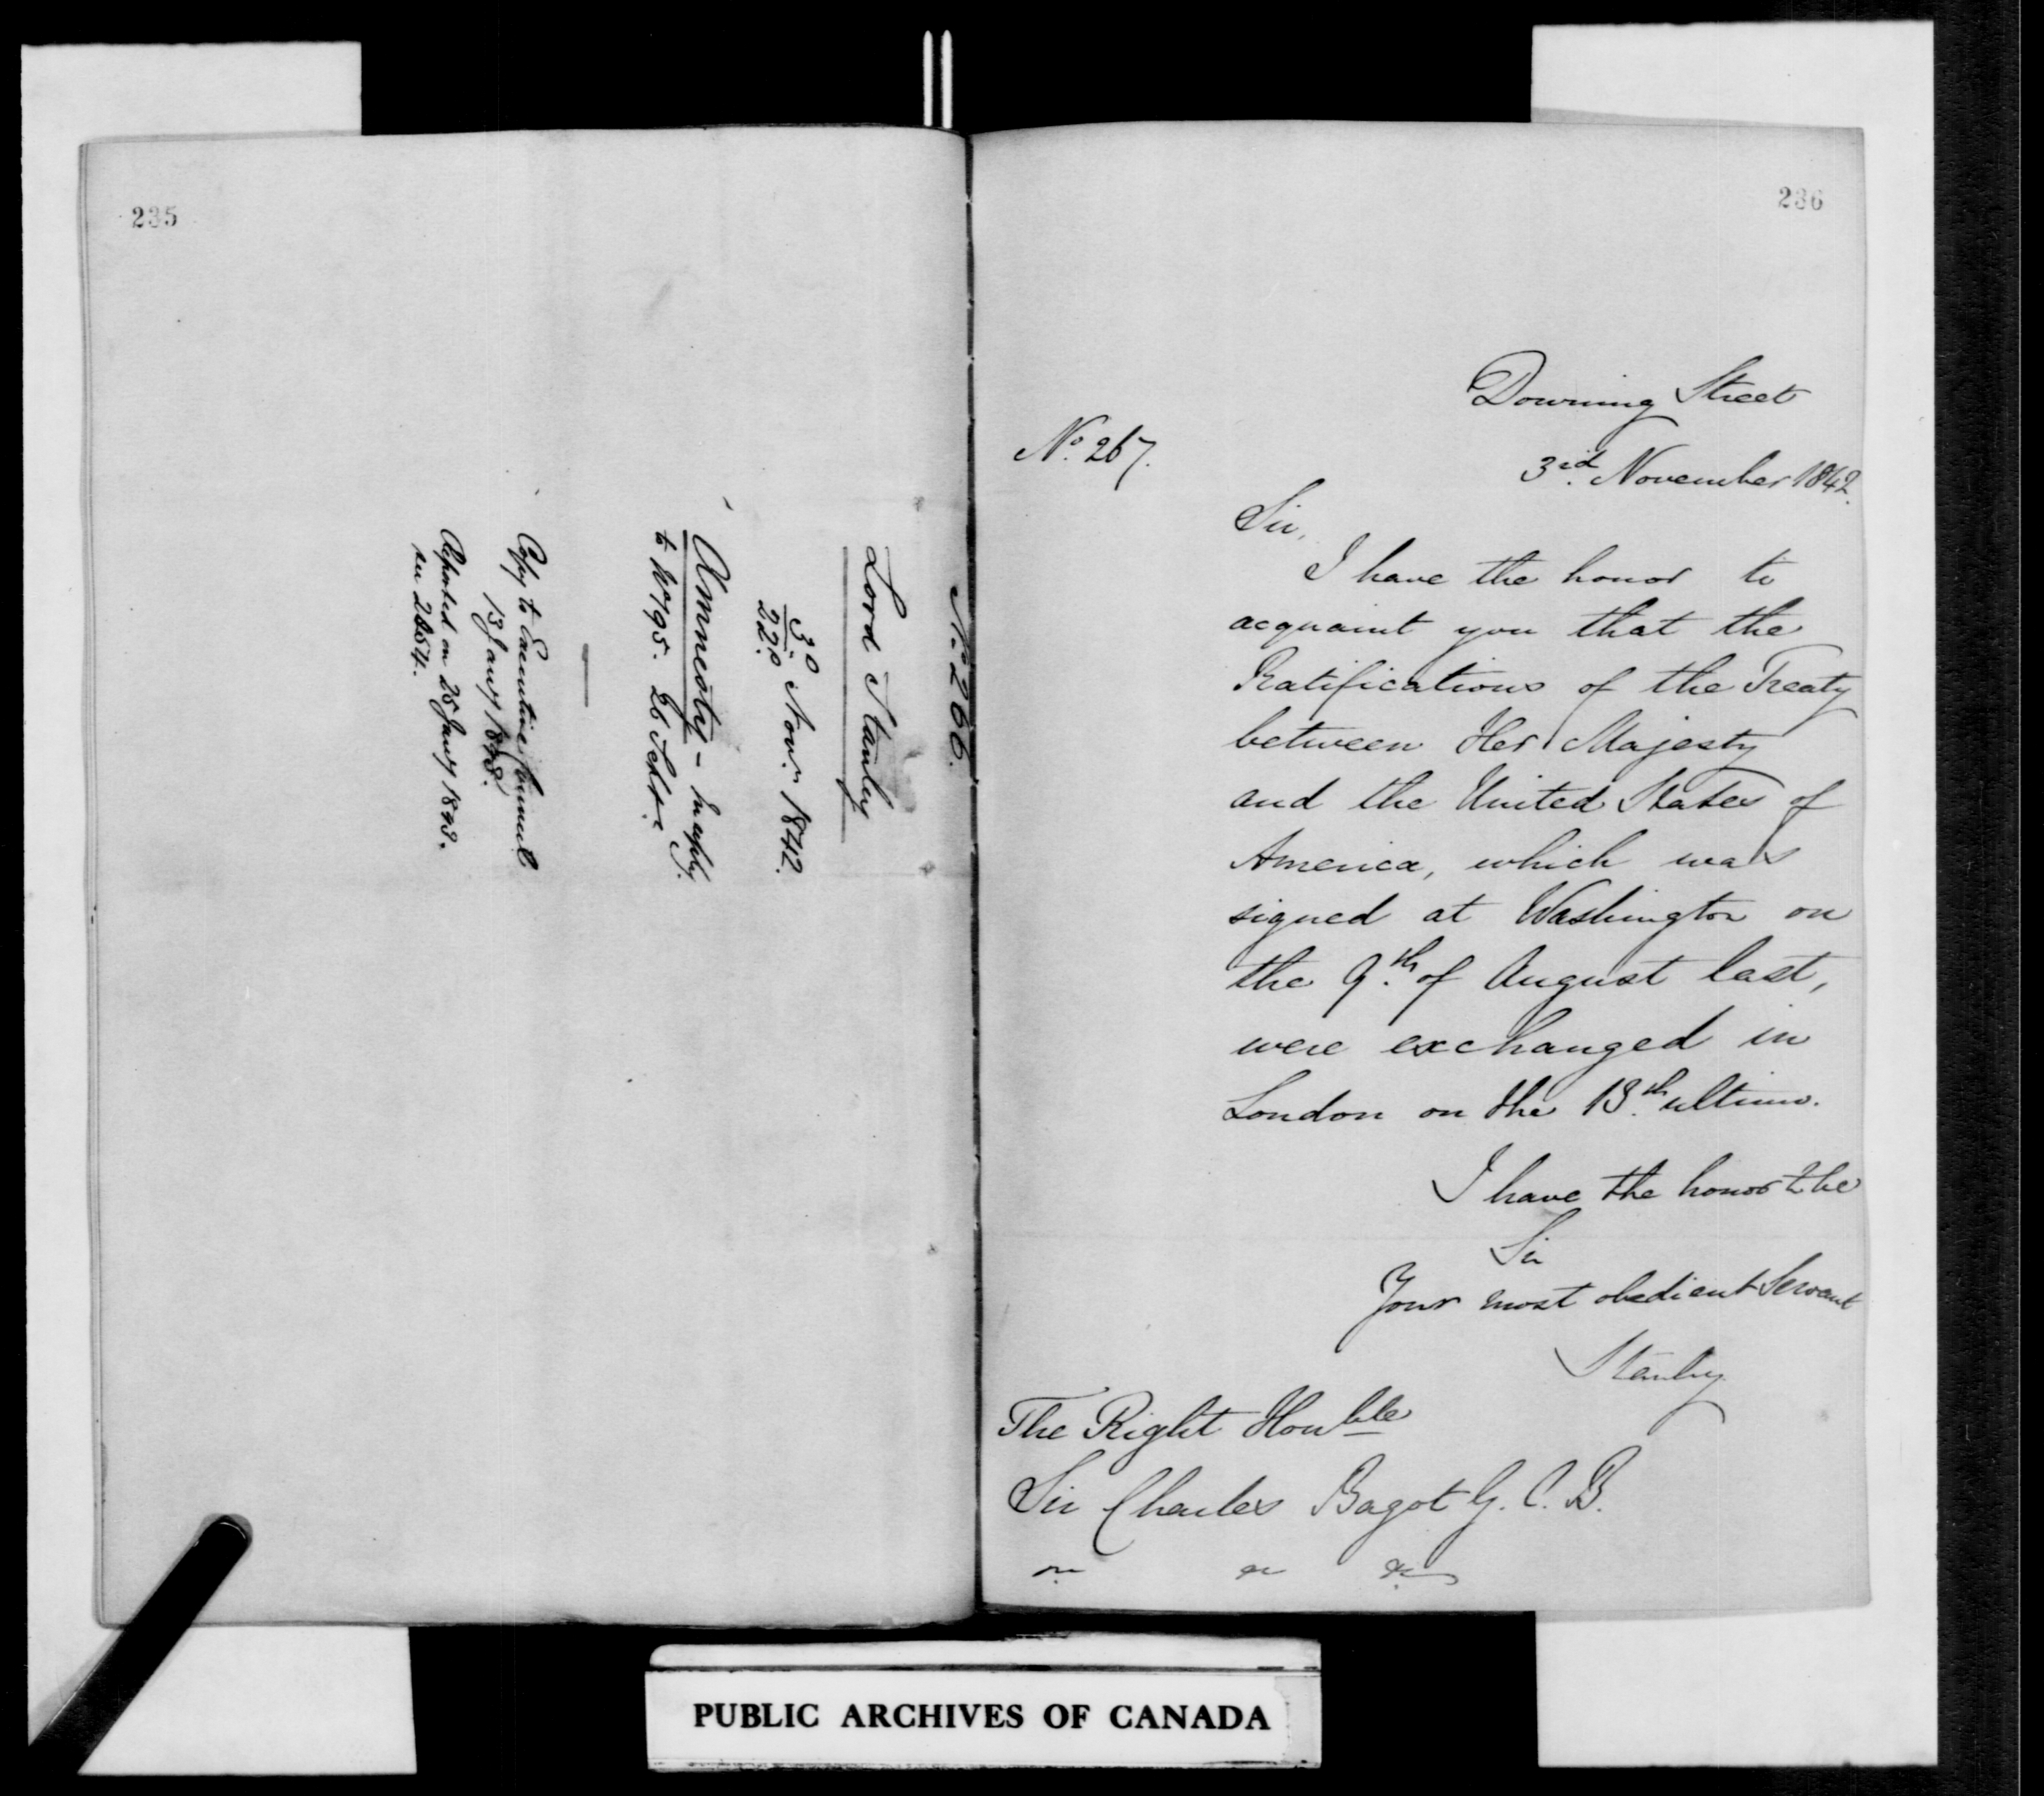 235
No. 266.
Lord Stanley
3d
22d Novr. 1842.
Amnesty – In reply
to No 195. 26 Septr.
Copy to Executive Council
13 Jany 1843.
Reported on 25 Jany 1843.
236
Downing Street
No. 267.
3rd. November 1842.
Sir,
I have the honor to
acquaint you that the
Ratifications of the Treaty
between Her Majesty
and the United States of
America, which was
signed at Washington on
the 9th. of August last,
were exchanged in
London on the 13th. ultimo.
I have the honor to be
Sir
Your most obedient Servant
Stanley
The Right Honble
Sir Charles Bagot G. C. B.
&c &c &c
PUBLIC ARCHIVES OF CANADA